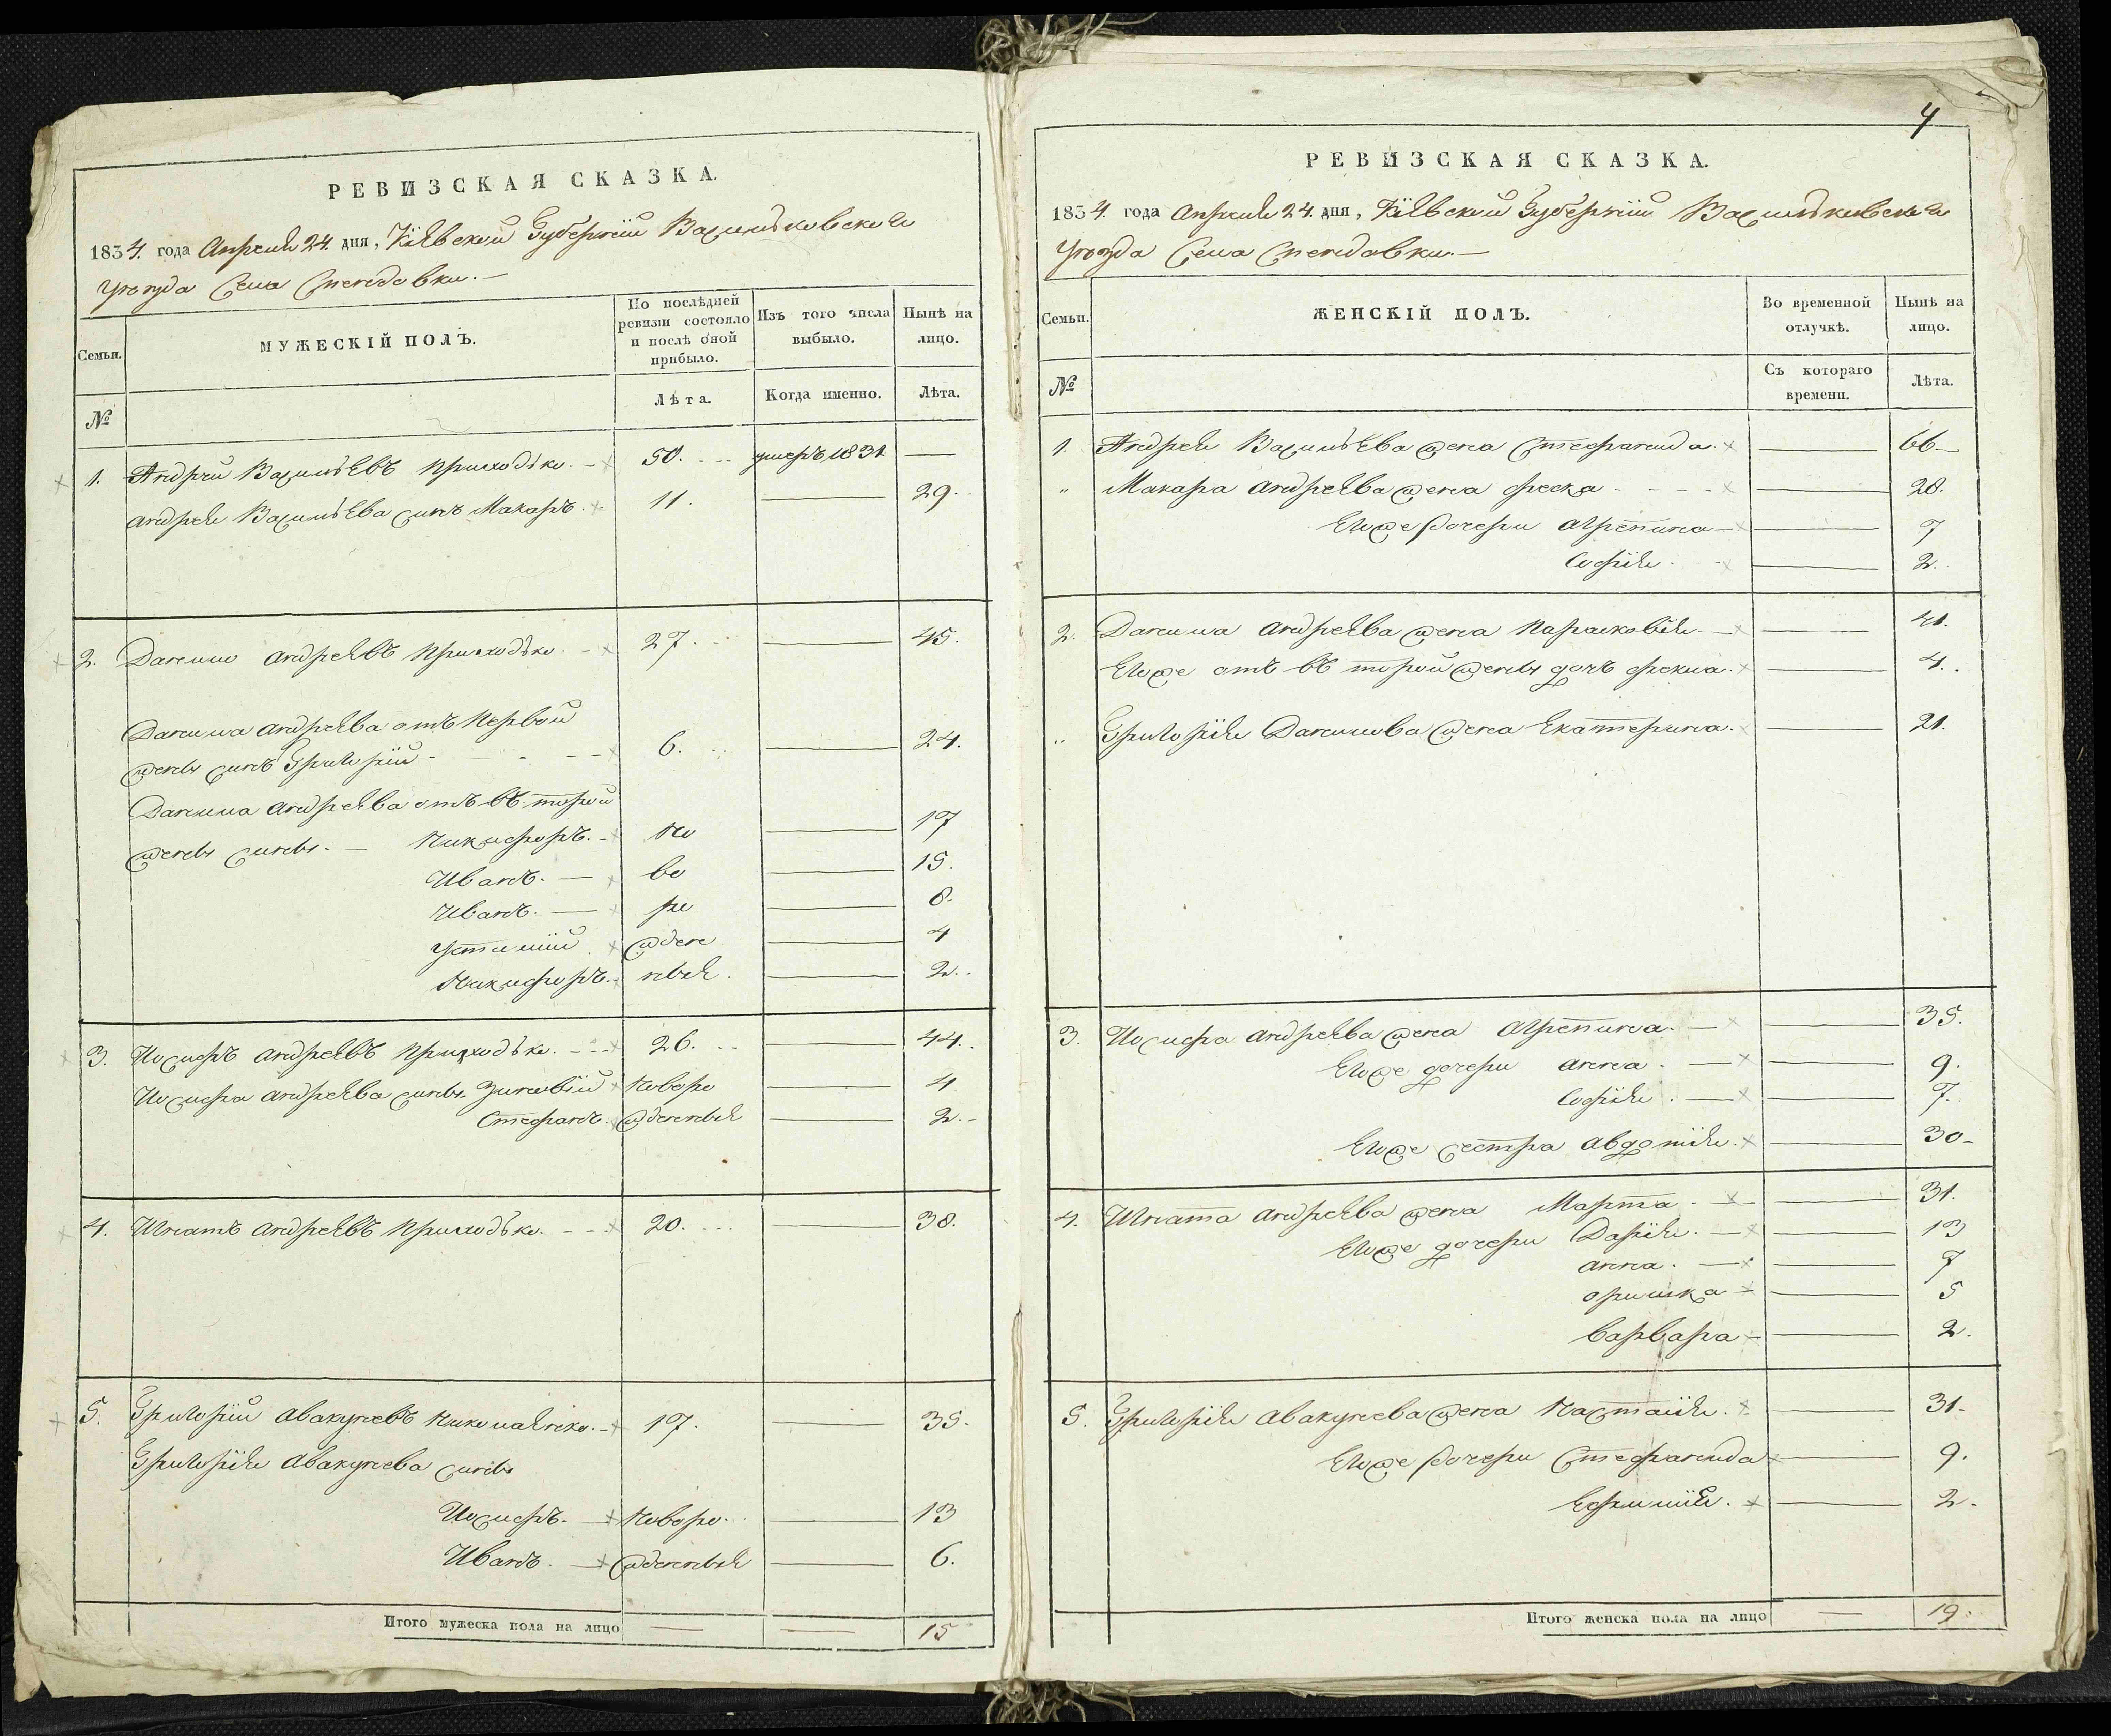 РЕВИЗСКАЯ СКАЗКА.
1834. года Апреля 24. дня, Кіевской Губерніи Васильковскаго
уѣзда Села Снегдовки.—
Семьи. МУЖЕСКІЙ ПОЛЪ. По послѣдней ревизіи состояло и послѣ оной прибыло. Изъ того числа выбыло. Нынѣ на лицо.
№ Лѣта. Когда именно. Лѣта.
1. Андрей Васильевъ Приходько. 50. умеръ 1831 —
Андрея Васильева сынъ Макаръ. 11. — 29.
2. Данило Андреевъ Приходько. 27. — 45.
Данила Андреева отъ первой
жены сынъ Григорій 6. — 24.
Данила Андреева отъ второй
жены сыны.— Никифоръ. но — 17
Иванъ. во — 15.
Иванъ. ро — 8.
Устимій жден — 4
Никифоръ. ныя. — 2.
3. Иосифъ Андреевъ Приходько. 26. — 44.
Иосифа Андреева сыны Зиновій Новоро — 4
Стефанъ. жденныя — 2.
4. Игнатъ Андреевъ Приходько. 20. — 38.
5. Григорій Авакумовъ Николаенко. 17. — 35.
Григорія Авакумова сыны
Иосифъ. Новоро — 13
Иванъ. жденныя — 6.
Итого мужеска пола на лицо — — 15
4
РЕВИЗСКАЯ СКАЗКА.
1834. года Апреля 24. дня, Кіевской Губерніи Васильковскаго
уѣзда Села Снегдовки.—
Семьи. ЖЕНСКІЙ ПОЛЪ. Во временной отлучкѣ. Нынѣ на лицо.
№ Съ котораго времени. Лѣта.
1. Андрея Васильева жена Стефанида. — 66
" Макара Андреева жена — 28.
Егоже дочери Агрепина — 7
Софія — 2.
2. Данила Андреева жена Парасковія — 41.
Егоже отъ второй жены дочь Фекла. — 4.
" Григорія Данилова жена Екатерина. — 21.
3. Иосифа Андреева жена Агрепина. — 35.
Егоже дочери Анна. — 9.
Софія. — 7.
Егоже сестра Авдотія. — 30
4. Игната Андреева жена Марта — 31.
Егоже дочери Дарія. — 13
Анна. — 7
Оришка — 5
Варвара — 2.
5. Григорія Авакумова жена Настасія. — 31
Егоже дочери Стефанида — 9.
Ефимія. — 2.
Итого женска пола на лицо — 19.